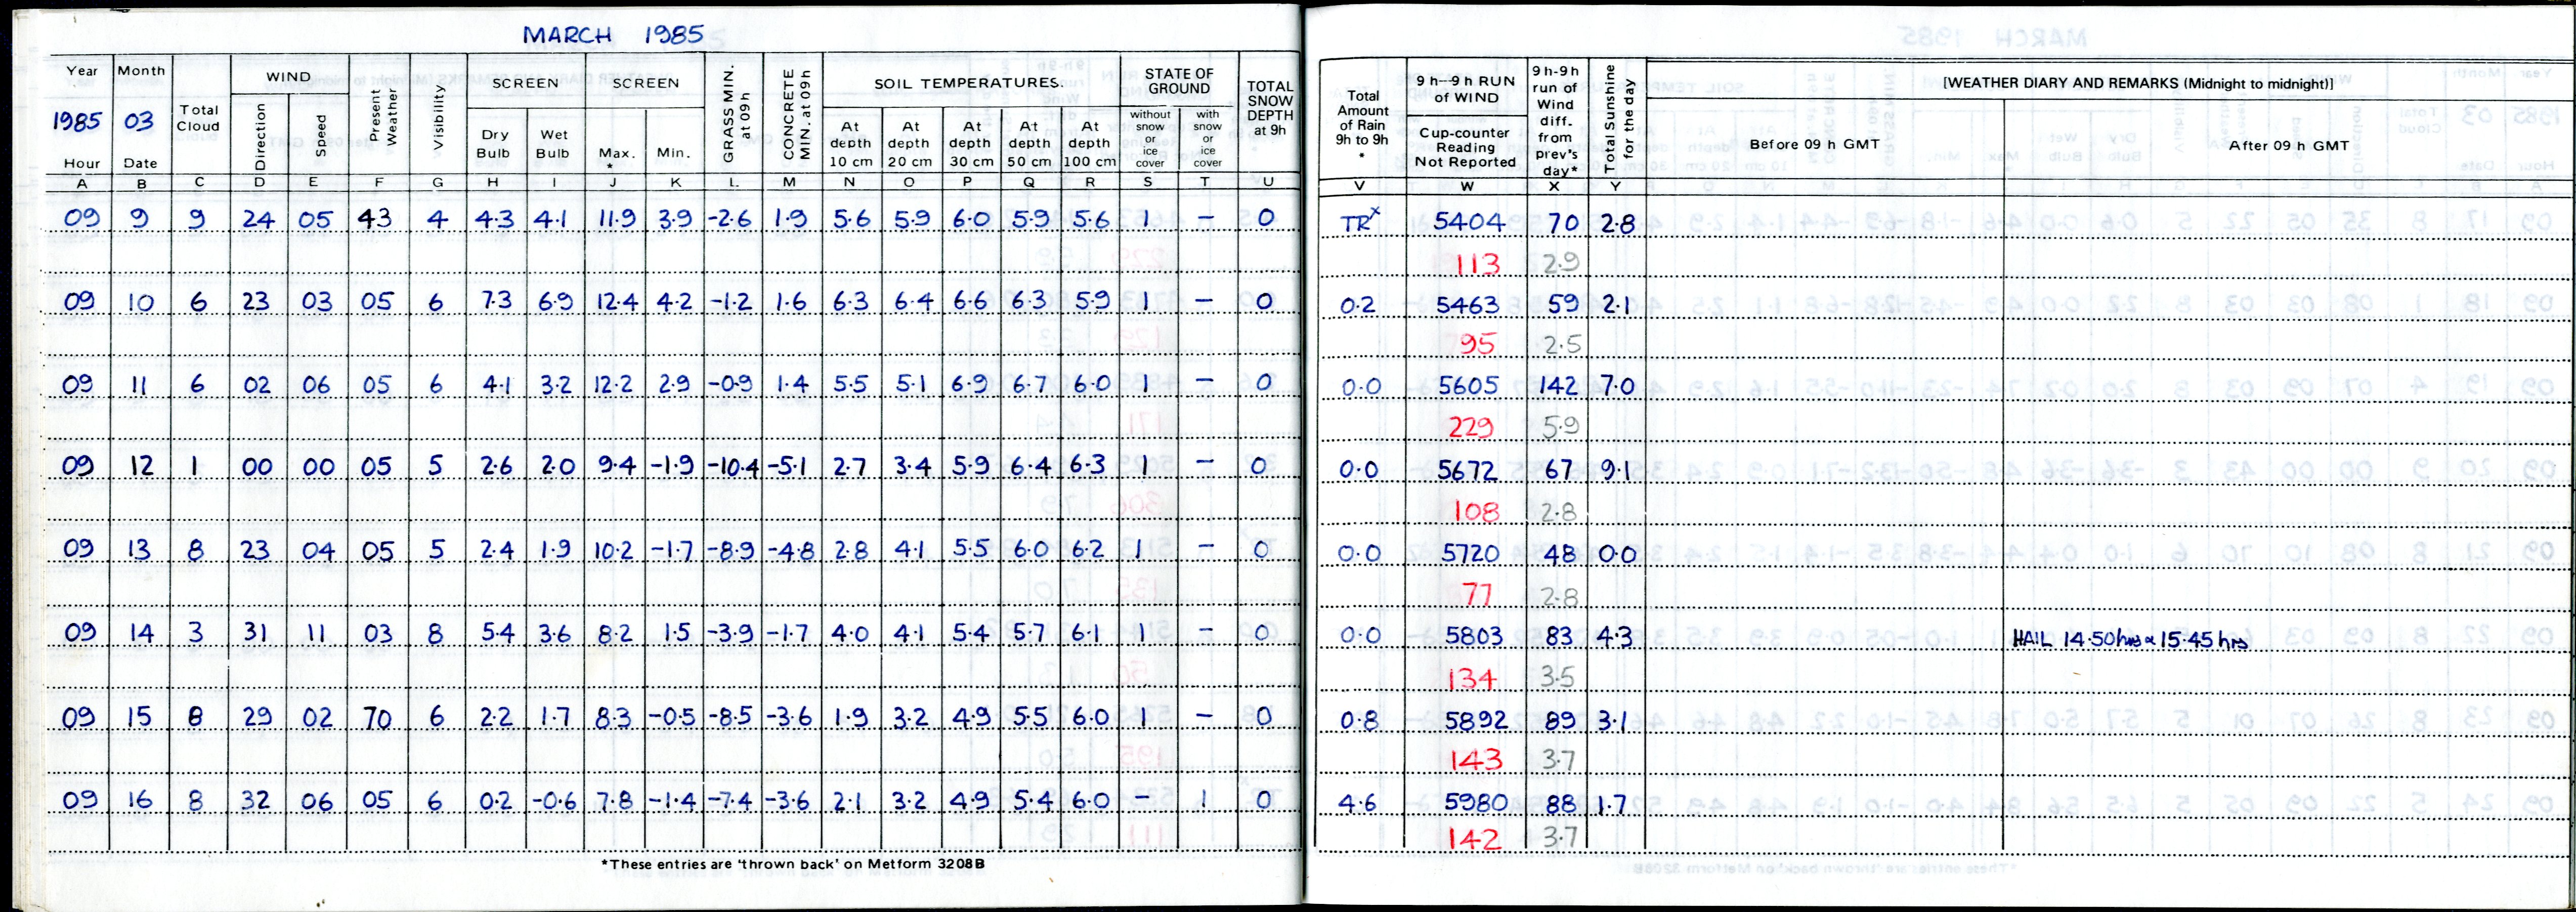 MARCH 1985
Year Month Total Cloud WIND Present Weather Visibility SCREEN SCREEN GRASS MIN. at 09h CONCRETE MIN. at 09h SOIL TEMPERATURES. STATE OF GROUND TOTAL SNOW DEPTH at 9h *
1985 03 Direction Speed Dry Bulb Wet Bulb Max. * Min. At depth 10 cm At depth 20 cm At depth 30 cm At depth 50 cm At depth 100 cm without snow or ice cover with snow or ice cover
Hour Date
A B C D E F G H I J K L M N O P Q R S T U
09 9 9 24 05 43 4 4.3 4.1 11.9 3.9 -2.6 1.9 5.6 5.9 6.0 5.9 5.6 1 – 0
09 10 6 23 03 05 6 7.3 6.9 12.4 4.2 -1.2 1.6 6.3 6.4 6.6 6.3 5.9 1 – 0
09 11 6 02 06 05 6 4.1 3.2 12.2 2.9 -0.9 1.4 5.5 5.1 6.9 6.7 6.0 1 – 0
09 12 1 00 00 05 5 2.6 2.0 9.4 -1.9 -10.4 -5.1 2.7 3.4 5.9 6.4 6.3 1 – 0
09 13 8 23 04 05 5 2.4 1.9 10.2 -1.7 -8.9 -4.8 2.8 4.1 5.5 6.0 6.2 1 – 0
09 14 3 31 11 03 8 5.4 3.6 8.2 1.5 -3.9 -1.7 4.0 4.1 5.4 5.7 6.1 1 – 0
09 15 8 29 02 70 6 2.2 1.7 8.3 -0.5 -8.5 -3.6 1.9 3.2 4.9 5.5 6.0 1 – 0
09 16 8 32 06 05 6 0.2 -0.6 7.8 -1.4 -7.4 -3.6 2.1 3.2 4.9 5.4 6.0 – 1 0
*These entries are 'thrown back' on Metform 3208B
Total Amount of Rain 9h to 9h * 9 h–9 h RUN of WIND 9 h-9 h run of Wind diff. from prev's day* Total Sunshine for the day [WEATHER DIARY AND REMARKS (Midnight to midnight)]
Cup-counter Reading Not Reported Before 09 h GMT After 09 h GMT
V W X Y
TR x 5404 70 2.8
113 2.9
0.2 5463 59 2.1
95 2.5
0.0 5605 142 7.0
229 5.9
0.0 5672 67 9.1
108 2.8
0.0 5720 48 0.0
77 2.8
0.0 5803 83 4.3 HAIL 14.50hrs 15.45 hrs
134 3.5
0.8 5892 89 3.1
143 3.7
4.6 5980 88 1.7
142 3.7